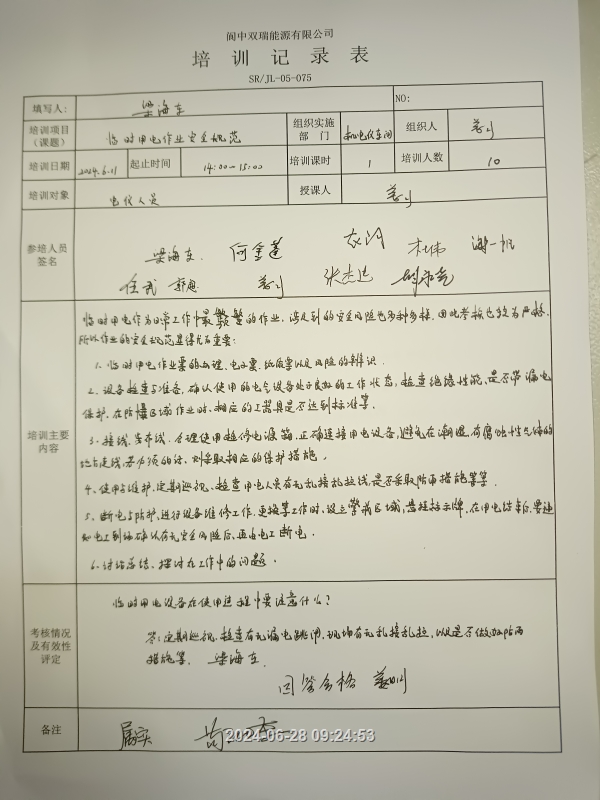 阆中双瑞能源有限公司
培 训 记 录 表
SR/JL-05-075
填写人： 梁海东 NO:
培训项目（课题） 临时用电作业安全规范 组织实施部门 机电仪车间 组织人
培训日期 2024.6.21 起止时间 14:00-15:00 培训课时 1 培训人数 10
培训对象 电仪人员 授课人
参培人员签名
梁海东. 何金莲 杜伟
任武 张杰达
培训主要内容
临时用电作为日常工作中最频繁的作业，涉及到的安全风险也多种多样，因此考核也较为严格，
所以作业的安全规范显得尤为重要：
1、临时用电作业票的办理，电工票，纸质票以及风险的辨识.
2、设备检查与准备，确认使用的电气设备处于良好的工作状态，检查绝缘性能、是否带漏电
保护，在防爆区域作业时，相应的工器具是否达到标准等.
3、接线，合理使用检修电源箱，正确连接用电设备，避免在潮湿、有腐蚀性气体的
地点走线，若必须的话，则采取相应的保护措施.
4、使用与维护，定期巡视、检查用电人员有无乱接乱拉线，是否采取防雨措施等等.
5、断电与防护，进行设备维修工作，更换等工作时，设立警戒区域，悬挂指示牌，在用电结束后，要通
知电工到场确认有无安全风险后，再由电工断电.
6、讨论总结、探讨在工作中的问题.
考核情况及有效性评定
临时用电设备在使用过程中要注意什么？
答：定期巡视，检查有无漏电跳闸，现场有无乱接乱拉，以及是否做好防雨
措施等. 梁海东
回答合格
备注 属实
2024-06-28 09:24:53